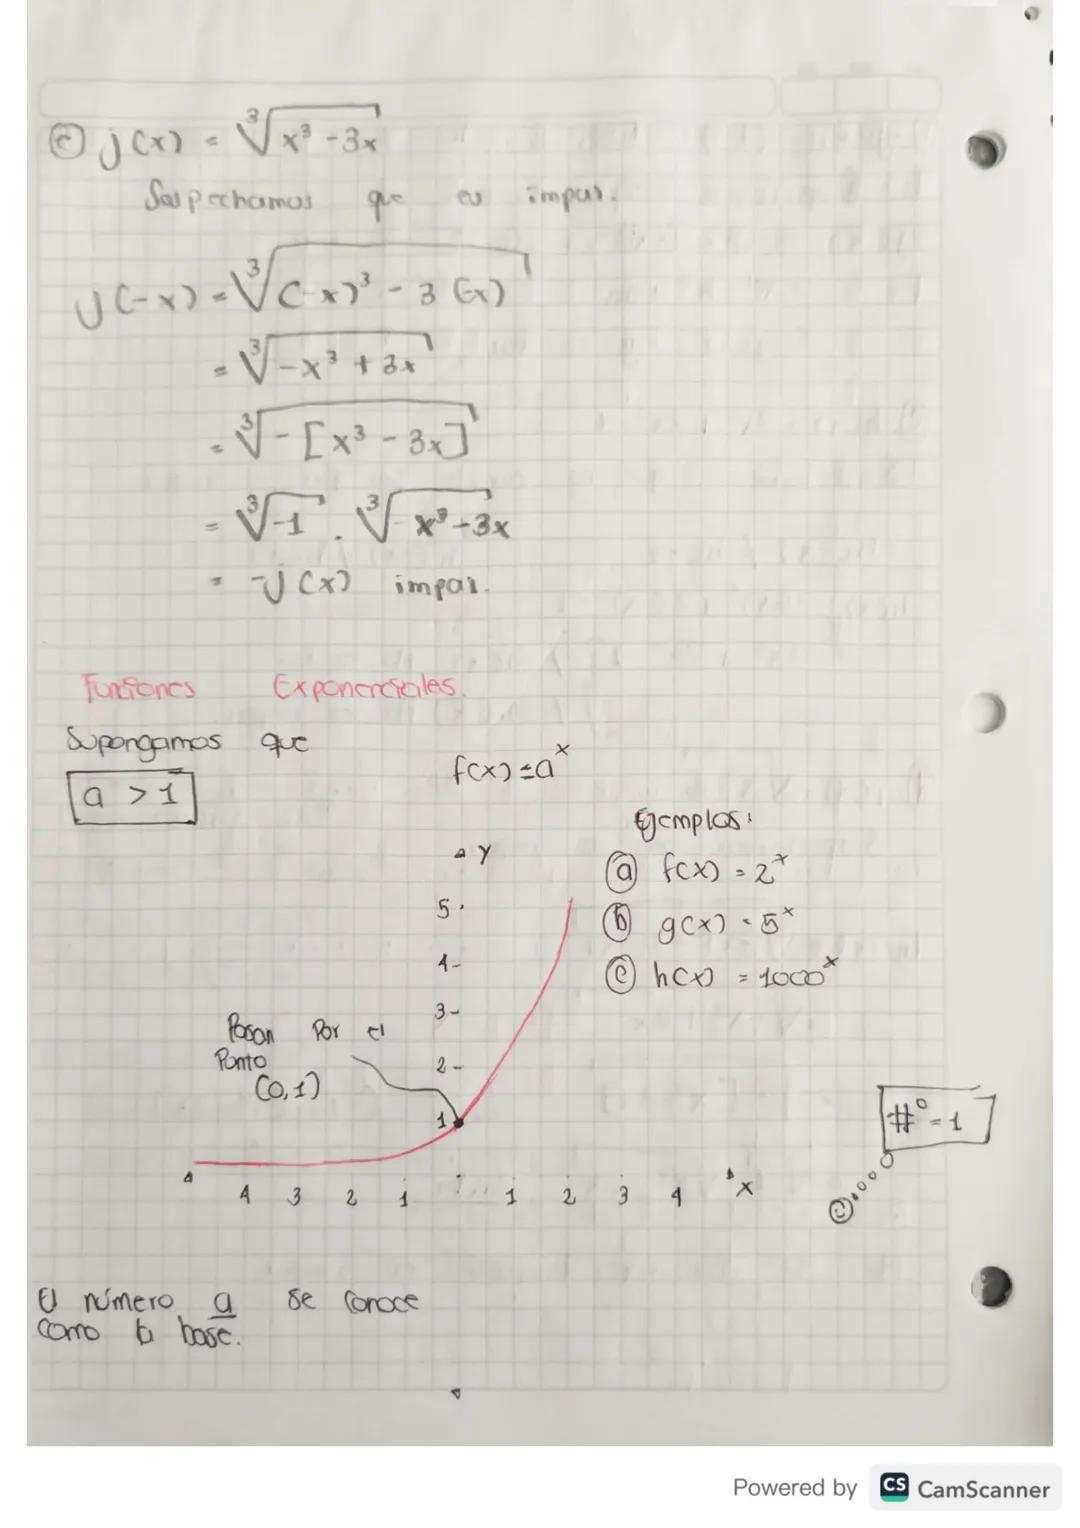 ⓒ j(x) = ∛(x³ - 3x)
Sospechamos que es impar.
j(-x) = ∛((-x)³ - 3(-x))
= ∛(-x³ + 3x)
= ∛(-[x³ - 3x])
= ∛(-1) . ∛(x³ - 3x)
= -j(x) impar.
Funciones Exponenciales.
Supongamos que
a > 1
f(x) = aˣ
Ejemplos:
ⓐ f(x) = 2ˣ
ⓑ g(x) = 5ˣ
ⓒ h(x) = 1000ˣ
Y
5
4
3
2
1
Pasan por el
Punto
(0,1)
#⁰ = 1
4 3 2 1 1 2 3 4 X
El número a se conoce
como la base.
Powered by CS CamScanner